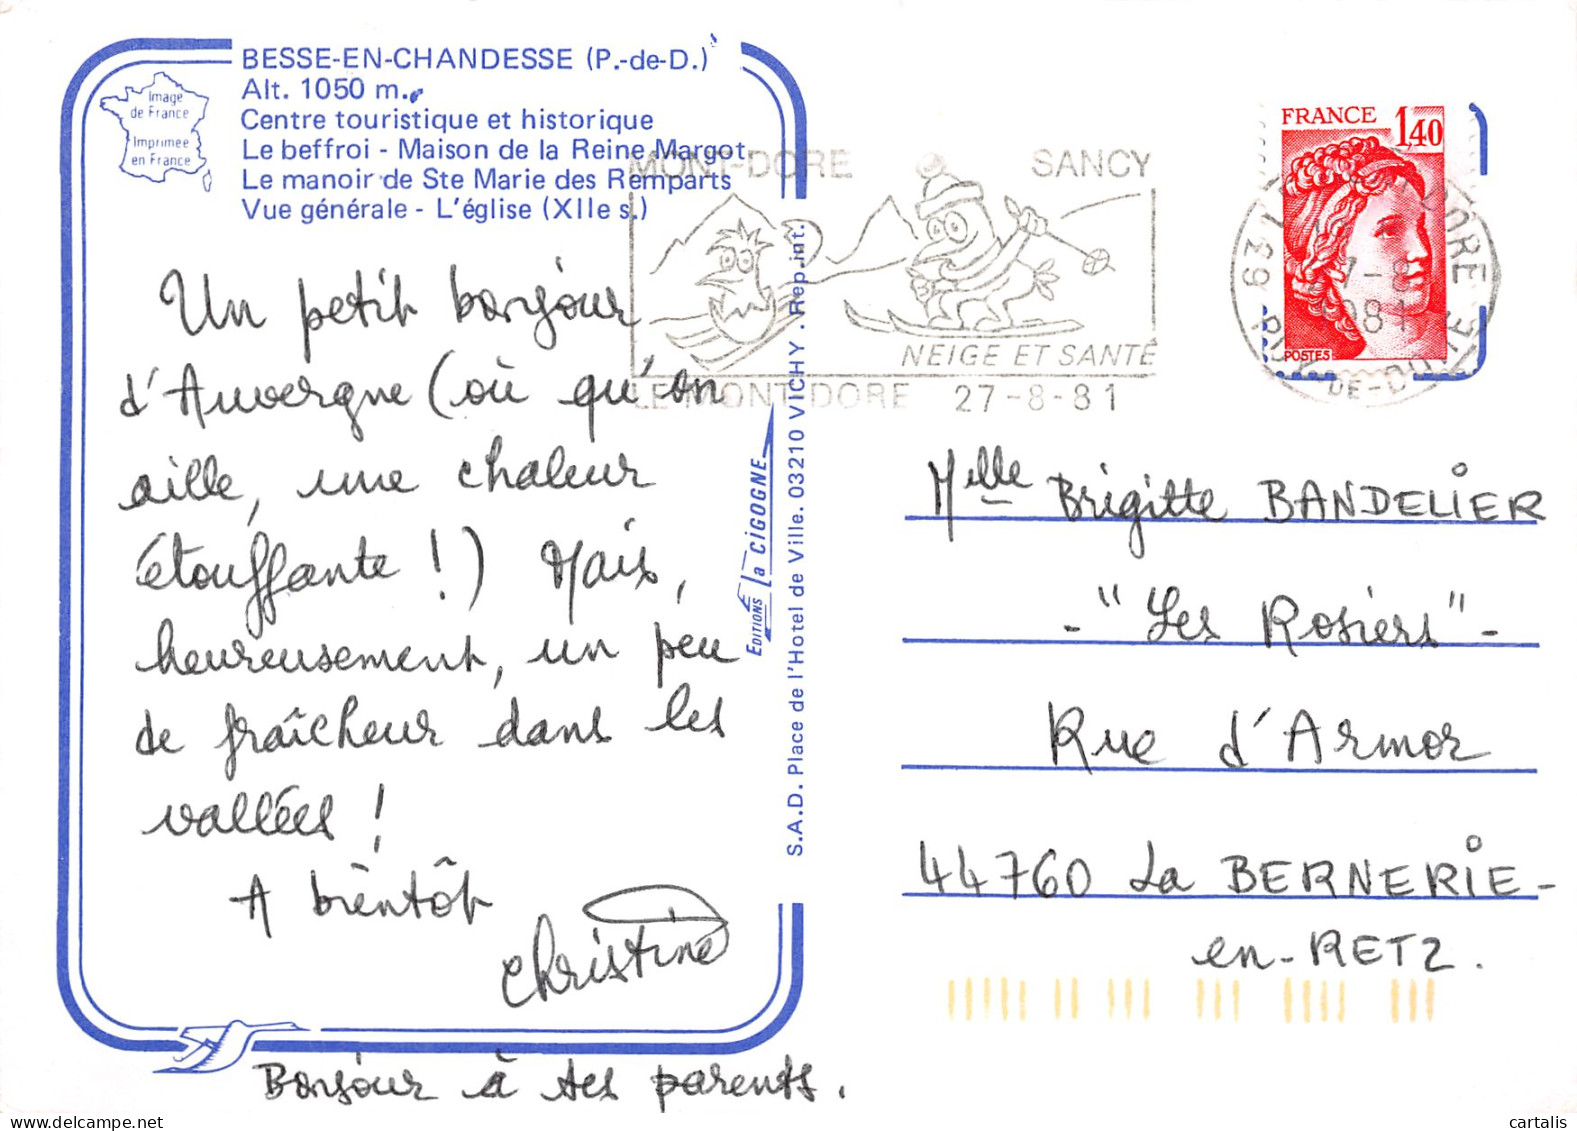 BESSE-EN-CHANDESSE (P.-de-D.)
Alt. 1050 m.
Centre touristique et historique
Le beffroi - Maison de la Reine Margot
Le manoir de Ste Marie des Remparts
Vue générale - L'église (XIIe s.)
Image
de France
Imprimée
en France
Un petit bonjour
d'Auvergne (où qu'on
aille, une chaleur
étouffante !) Mais,
heureusement, un peu
de fraîcheur dans les
vallées !
A bientôt
Christine
Bonjour à tes parents.
EDITIONS La CIGOGNE
S.A.D. Place de l'Hotel de Ville. 03210 VICHY . Rep.int.
MONT-DORE SANCY
NEIGE ET SANTÉ
LE MONT-DORE 27-8-81
FRANCE
1,40
POSTES
Melle Brigitte BANDELIER
- "Les Rosiers" -
Rue d'Armor
44760 La BERNERIE-
en-RETZ.
cartalis